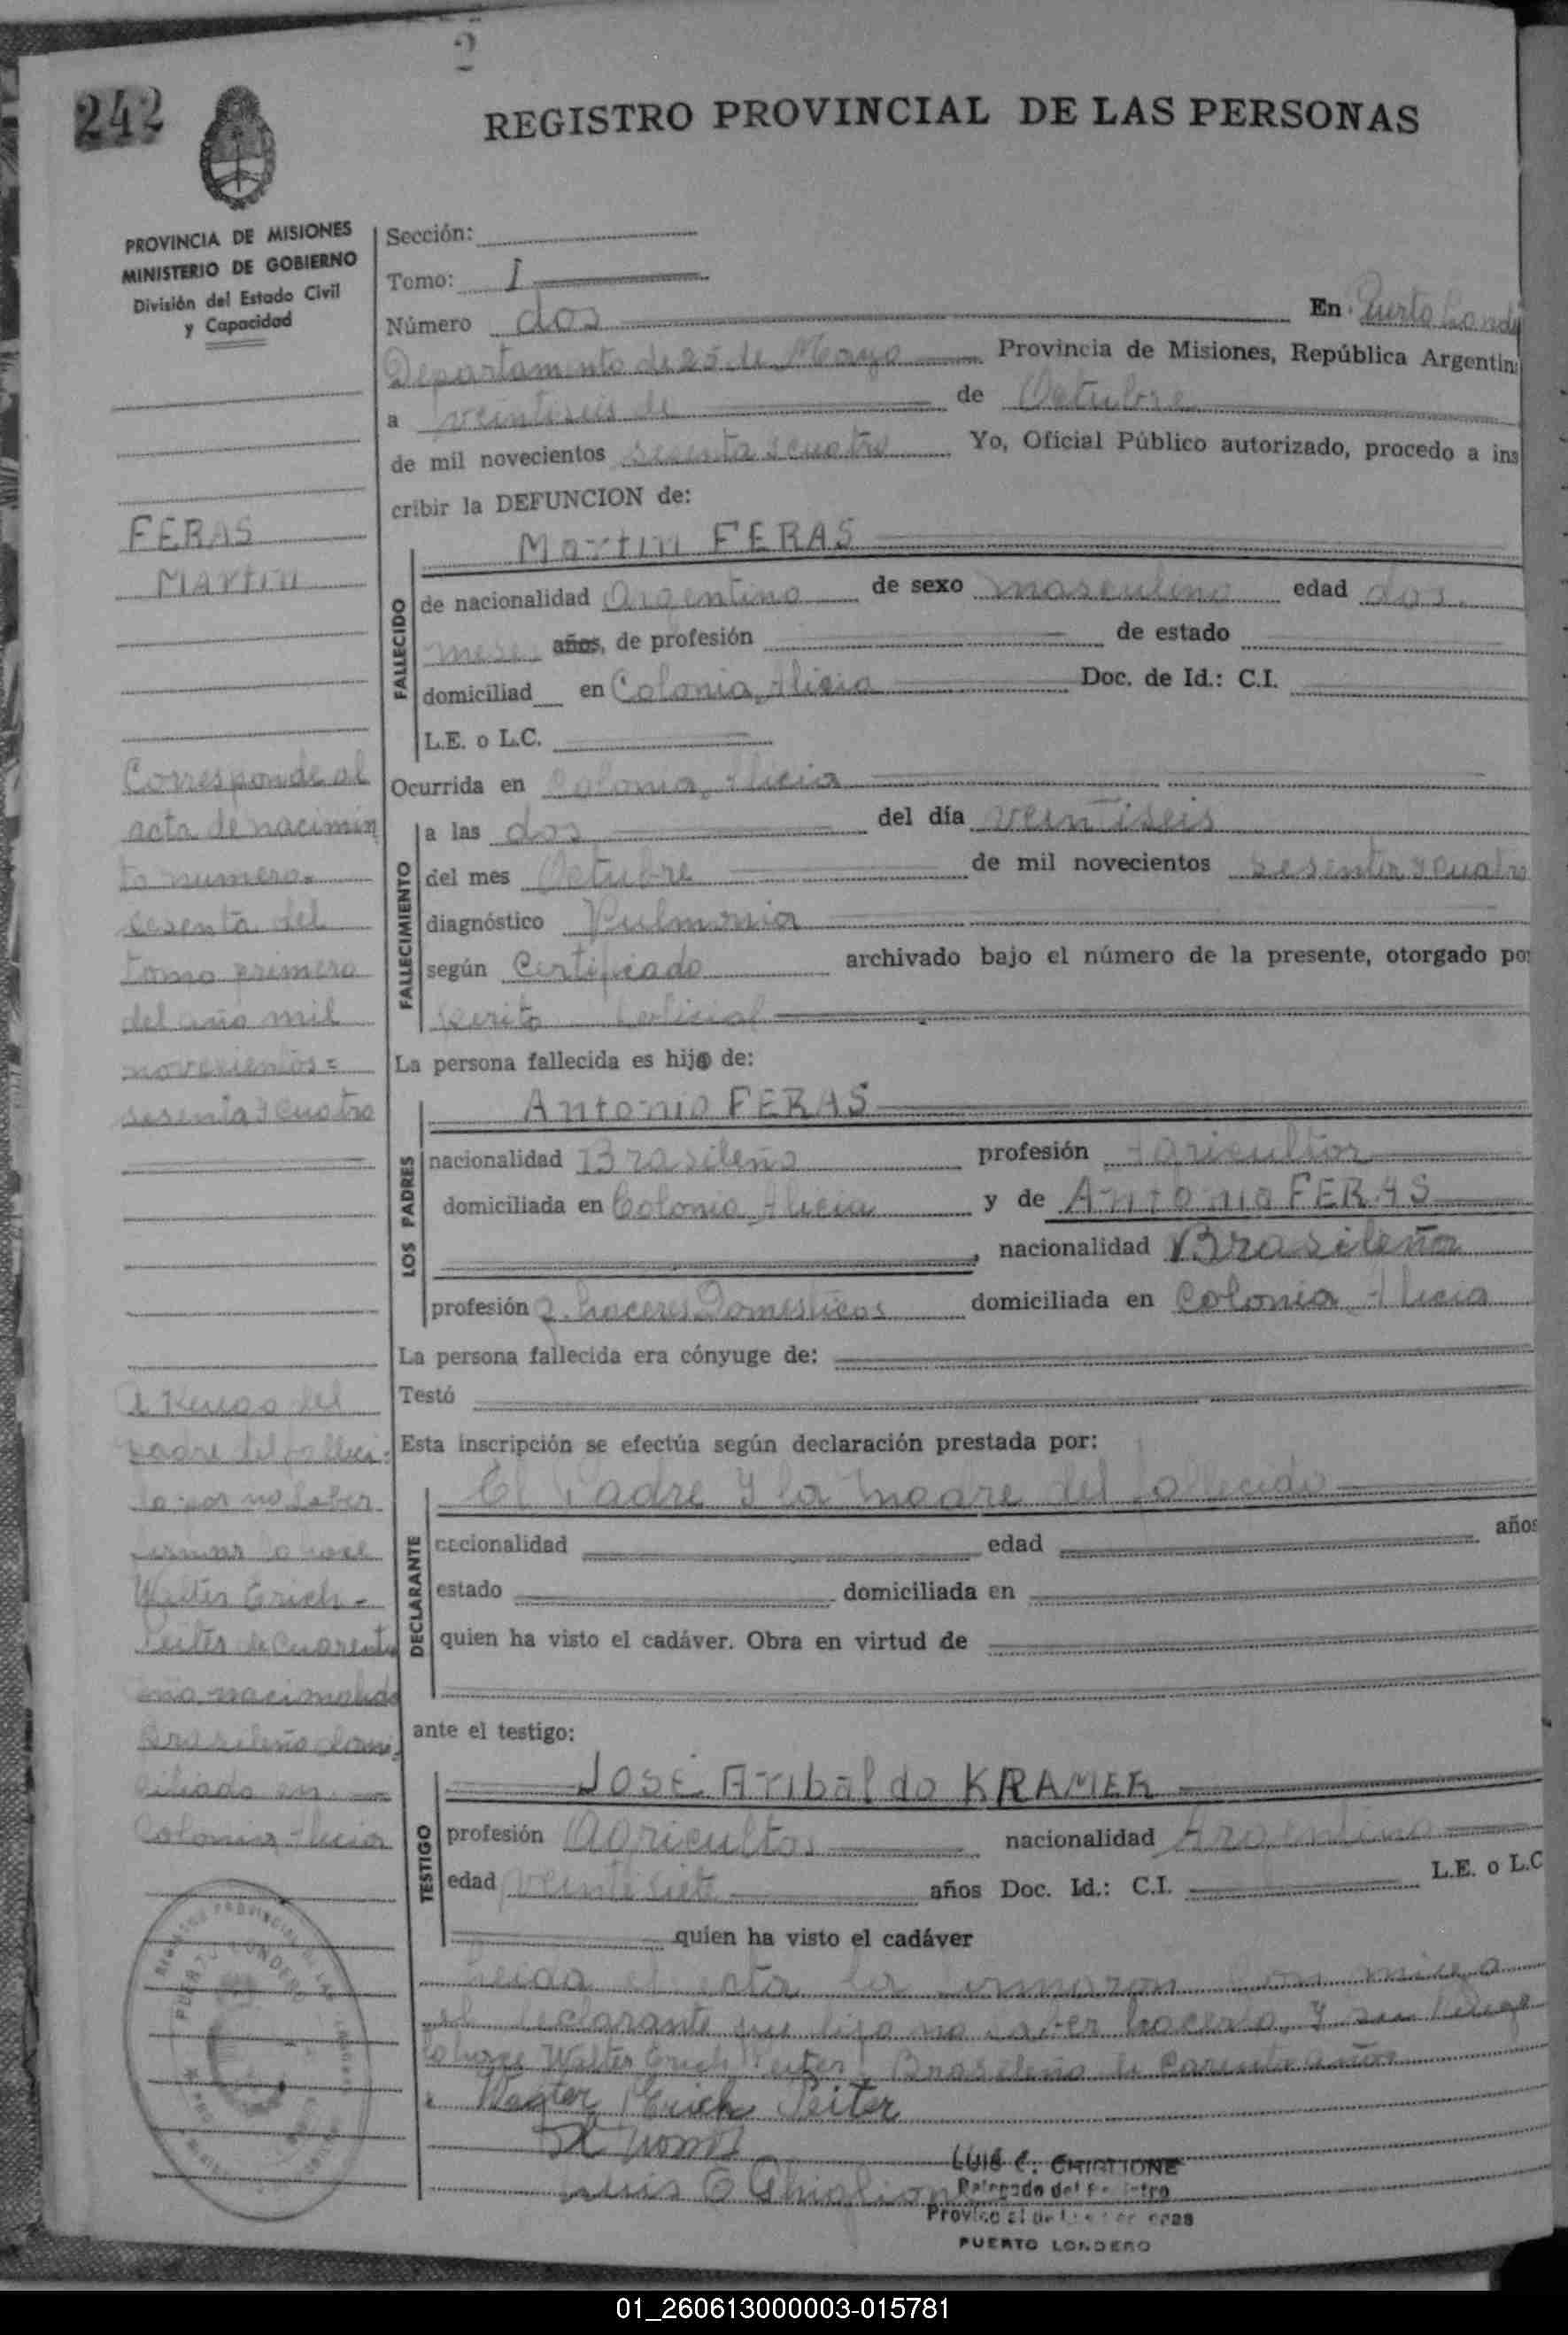 2
242
REGISTRO PROVINCIAL DE LAS PERSONAS
PROVINCIA DE MISIONES
MINISTERIO DE GOBIERNO
División del Estado Civil
y Capacidad
FERAS
Martin
Corresponde al
acta de nacimien
to numero=
sesenta del
tomo primero
del año mil
novecientos=
sesenta y cuatro
A Ruego del
padre del falleci-
do por no saber
firmar lo hace
Walter Erich-
Peiter de Cuarenta
nacionalida
Brasileño domi
ciliado en
Colonia Alicia
Sección:
Tomo: I
Número dos En Puerto Lond
Departamento de 25 de Mayo Provincia de Misiones, República Argentin
a veintiseis de de Octubre
de mil novecientos sesenta y cuatro Yo, Oficial Público autorizado, procedo a ins
cribir la DEFUNCION de:
FALLECIDO
Martin FERAS
de nacionalidad Argentino de sexo masculino edad dos
mese años, de profesión de estado
domiciliad en Colonia Alicia Doc. de Id.: C.I.
L.E. o L.C.
Ocurrida en Colonia Alicia
FALLECIMIENTO
a las dos del día veintiseis
del mes Octubre de mil novecientos sesenta y cuatro
diagnóstico Pulmonia
según Certificado archivado bajo el número de la presente, otorgado por
perito Policial
La persona fallecida es hijo de:
LOS PADRES
Antonio FERAS
nacionalidad Brasileño profesión Agricultor
domiciliada en Colonia Alicia y de Antonia FERAS
, nacionalidad Brasileña
profesión Q. haceres Domesticos domiciliada en Colonia Alicia
La persona fallecida era cónyuge de:
Testó
Esta inscripción se efectúa según declaración prestada por:
DECLARANTE
El Padre y la madre del fallecido
nacionalidad edad años
estado domiciliada en
quien ha visto el cadáver. Obra en virtud de
ante el testigo:
TESTIGO
José Aribaldo KRAMER
profesión Agricultor nacionalidad Argentino
edad veintisiete años Doc. Id.: C.I. L.E. o L.C
quien ha visto el cadáver
el acta la firmaron
el declarante que dijo no saber hacerlo, y su
lo hace Walter Erich Peiter, Brasileño de años
Walter Erich Peiter
Luis C Ghiglione
LUIS C. GHIGLIONE
Delegado del Registro
Provincial de las Personas
PUERTO LONDERO
REGISTRO PROVINCIAL DE LAS
PUERTO LONDERO
01_260613000003-015781